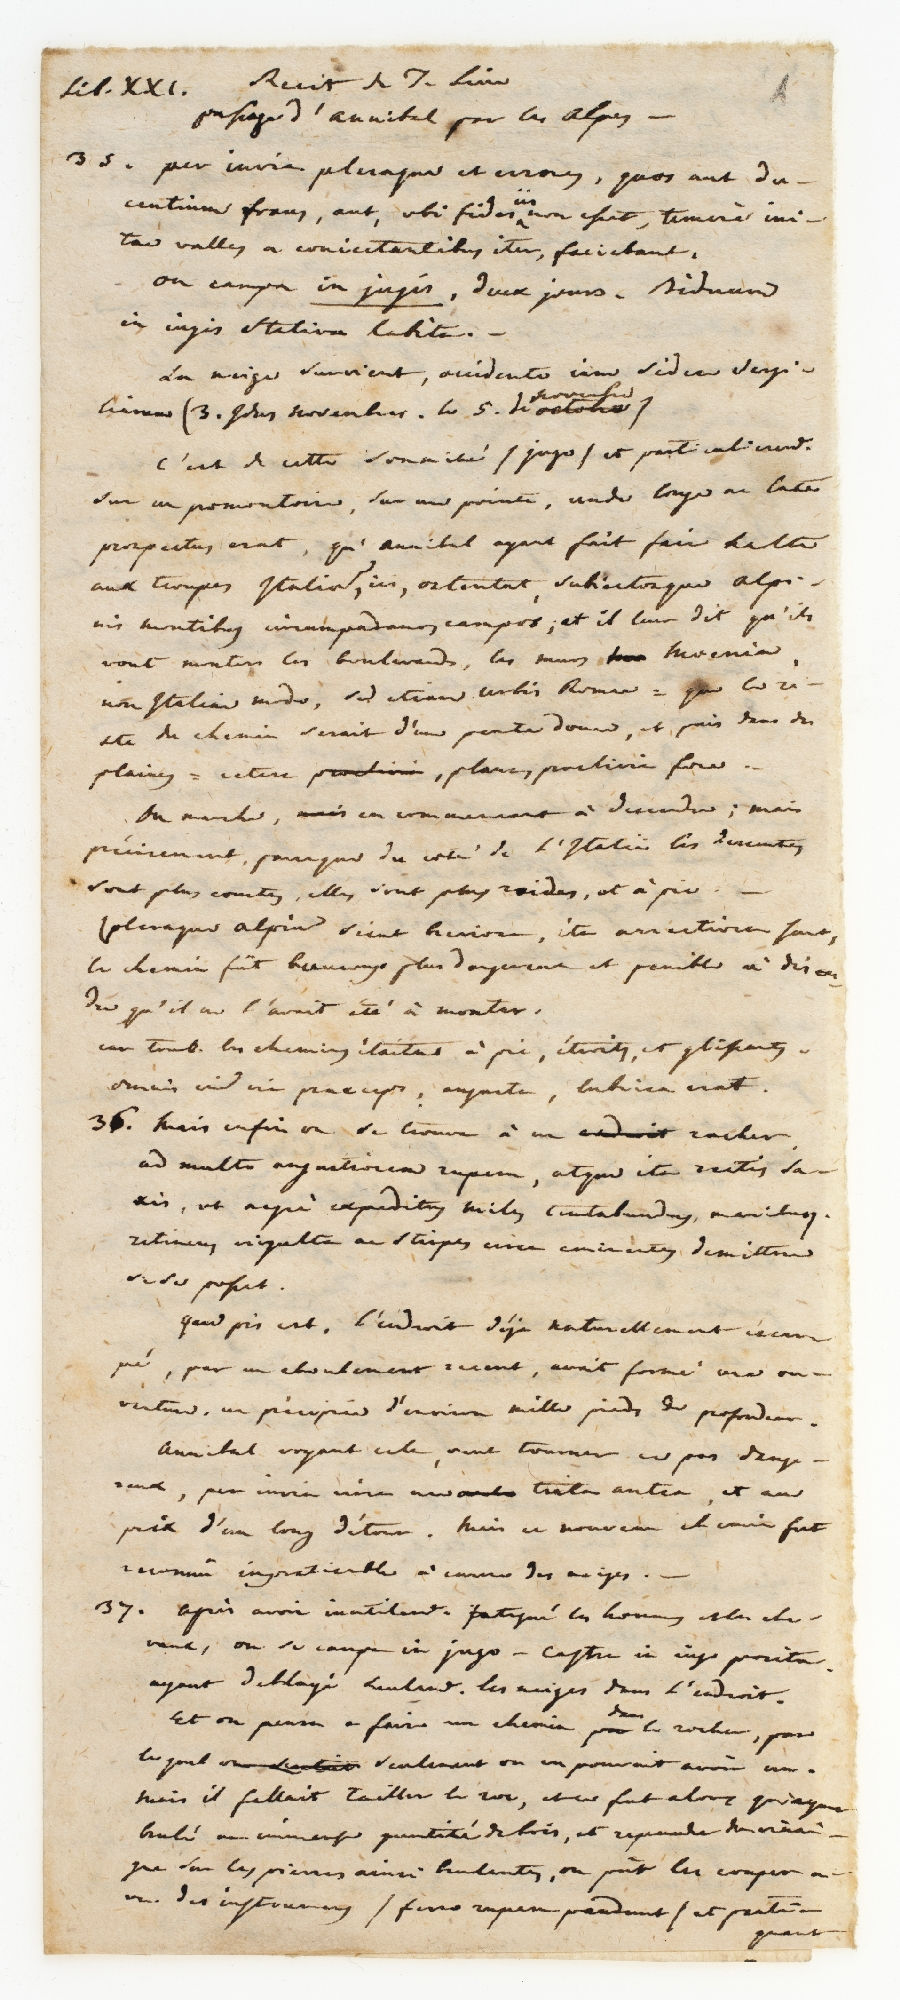 Lib. XXI. Recit de T. Live
passage d'annibal par les alpes —
35. per invia pleraque et errores, quos aut du-
centium fraus, aut, ubi fides iis non esset, temerè ini-
tae valles a coniectantibus iter, faciebant.
on campa in jugis, deux jours. Biduum
in iugis stativa habita. —
La neige survient, occidente iam sidere vergi-
liarum (3. Idus novembres. le 5. de octobre novembre)
C'est de cette sommité (jugo) et particulieremt.
sur un promontoire, sur une pointe, unde longe ac late
prospectus erat, qu'annibal ayant fait faire halte
aux troupes Italiam, iis, ostentat, subiectosque alpi-
nis montibus circumpadanos campos; et il leur dit qu'ils
vont monter les boulevards, les murs moenia,
non Italiae modo, sed etiam urbis Romae = que le re-
ste du chemin serait d'une pente douce, et puis dans des
plaines = cetera proclivia, plana, proclivia fore —
On marche, mais en commencant à descendre; mais
précisement, parceque du coté de L'Italie les descentes
sont plus courtes, elles sont plus roides, et à pic. —
(pleraque alpium sicut breviora, ita arrectiora sunt,
le chemin fût beaucoup plus dangereux et penible à descen-
dre qu'il ne l'avait été à monter.
car tous les chemins étaient à pic, étroits, et glissants.
omnis enim via praeceps, angusta, lubrica erat.
36. Mais enfin on se trouve à un endroit rocher,
ad multo angustiorem rupem, atque ita rectis sa-
xis, ut aegrè expeditus miles tentabundus, manibusq.
retinens virgulta ac stirpes circa eminentes demittere
sese posset.
Qui pis est, L'endroit déja naturellement escar-
pé, par un eboulement recent, avait formé une ou-
verture, un précipice d'environ mille pieds de profondeur.
Annibal voyant cela, veut tourner ce pas dange-
reux, per invia circa nec trita antea, et au
prix d'un long détour. Mais ce nouveau chemin fut
reconnû impraticable à cause des neiges. —
37. après avoir inutilemt. fatigué les hommes et les che-
vaux, on se campe in jugo — castra in iugo posita.
ayant deblayé seulemt. les neiges dans L'endroit.
Et on pensa a faire un chemin par dans le rocher, par
lequel seulement on en pouvait avoir un.
Mais il fallait tailler le roc, et ce fut alors qu'ayant
brulé une immense quantité de bois, et repandu du vinai-
gre sur les pierres ainsi brulantes, on pût les couper a-
vec des instrumens (ferro rupem pandunt) et prati-
quant